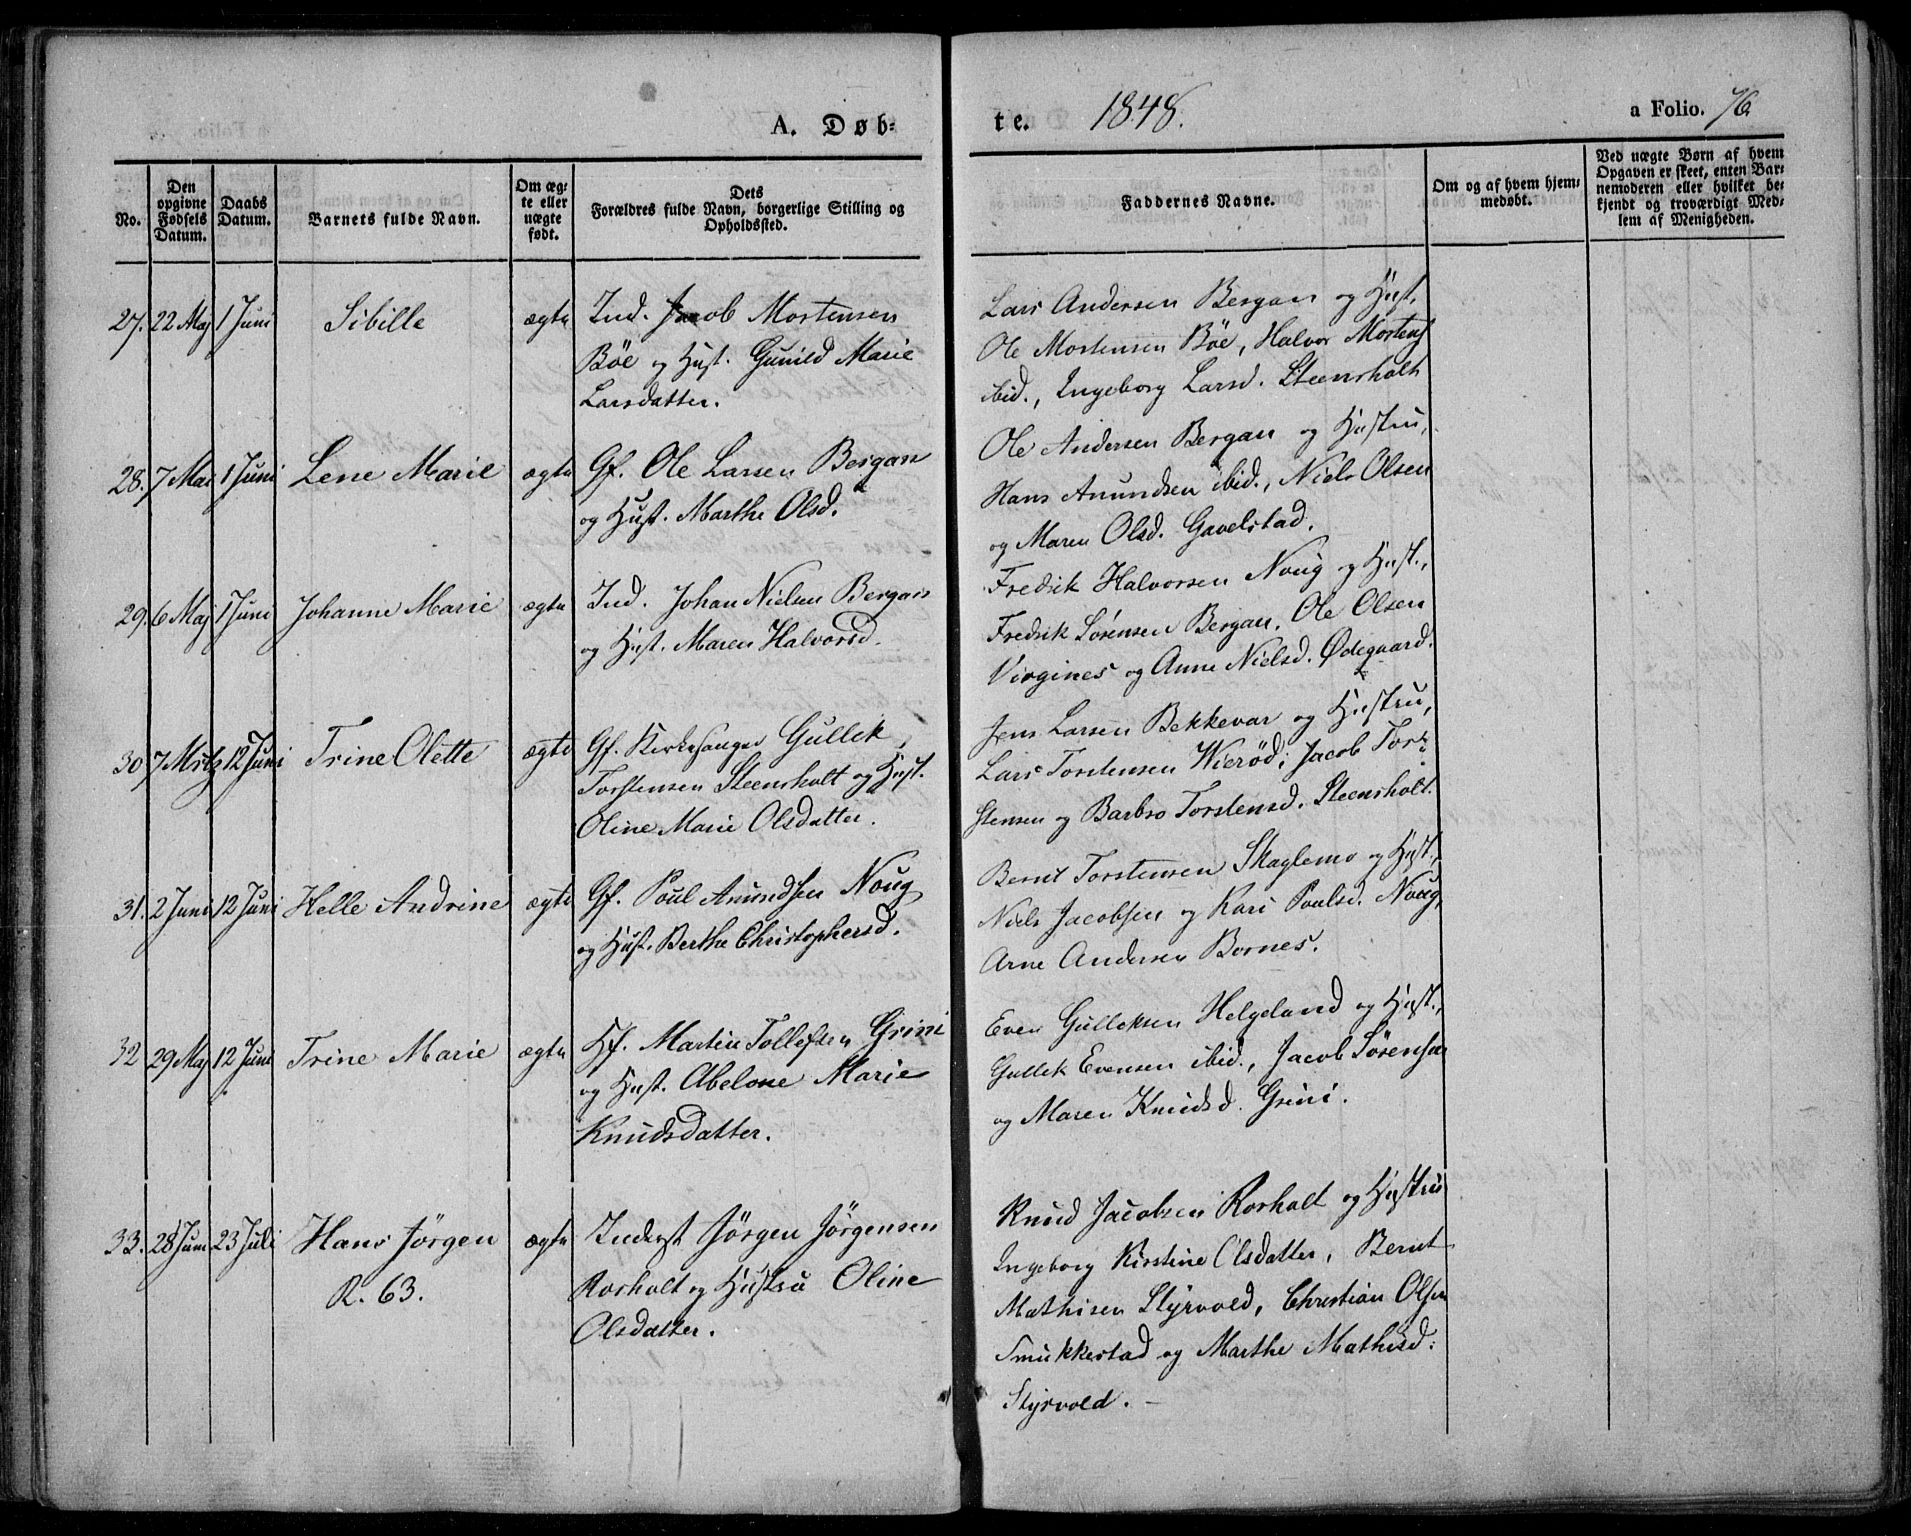 A. Døb-
te. 1848. a Folio. 76
No.
Den opgivne Fødsels Datum.
Daabs Datum.
Barnets fulde Navn.
Om ægte eller uægte født.
Dets Forældres fulde Navn, borgerlige Stilling og Opholdssted.
Faddernes Navne.
Om og af hvem hjemmedøbt.
Ved uægte Børn af hvem Opgaven er skeet, enten Barnemoderen eller hvilket bekjendt og troværdigt Medlem af Menigheden.
27. 22 Maj 1 Juni Sibille ægte Ind. Jacob Mortensen
Bøe og Hust. Gunild Marie
Larsdatter.
Lars Andersen Bergan og Hust.
Ole Mortensen Bøe, Halvor Mortens
ibid., Ingeborg Larsd. Steensholt
28. 7 Mai 1 Juni Lene Marie ægte Gf. Ole Larsen Bergan
og Hust. Marthe Olsd.
Ole Andersen Bergan og Hustru,
Hans Anundsen ibid., Niels Olsen
og Maren Olsd. Gavelstad.
29. 6 Maj 1 Juni Johanne Marie ægte Ind. Johan Nielsen Bergan
og Hust. Maren Halvorsd.
Fredrik Halvorsen Noug og Hust.,
Fredrik Sørensen Bergan, Ole Olsen
Virgines og Anne Nielsd. Ødegaard.
30. 7 Mrtz 12 Juni Trine Olette ægte Gf. Kirkesanger Gullek
Torstensen Steensholt og Hust.
Oline Marie Olsdatter.
Jens Larsen Bekkevar og Hustru,
Lars Torstensen Wierød, Jacob Tor-
stensen og Barbro Torstensd. Steensholt.
31. 2 Juni 12 Juni Helle Andrine ægte Gf. Poul Anundsen Noug
og Hust. Berthe Christophersd.
Bernt Torstensen Skaglemo og Hust.,
Niels Jacobsen og Kari Poulsd. Noug,
Arne Andersen Bornes.
32 29 Maj 12 Juni Trine Marie ægte Hf. Martin Tollefsen Grini
og Hust. Abelone Marie
Knudsdatter.
Even Gulleksen Helgeland og Hust.,
Gullek Evensen ibid., Jacob Sørensen
og Maren Knudsd. Grini.
33. 28 Juni 23 Juli Hans Jörgen ægte Inderst Jörgen Jörgensen
R. 63.
Rorholt og Hustru Oline
Olsdatter.
Knud Jacobsen Rorholt og Hustru
Ingeborg Kirstine Olsdatter, Bernt
Mathisen Styrvold, Christian Olsen
Smukkestad og Marthe Mathisd:
Styrvold. -